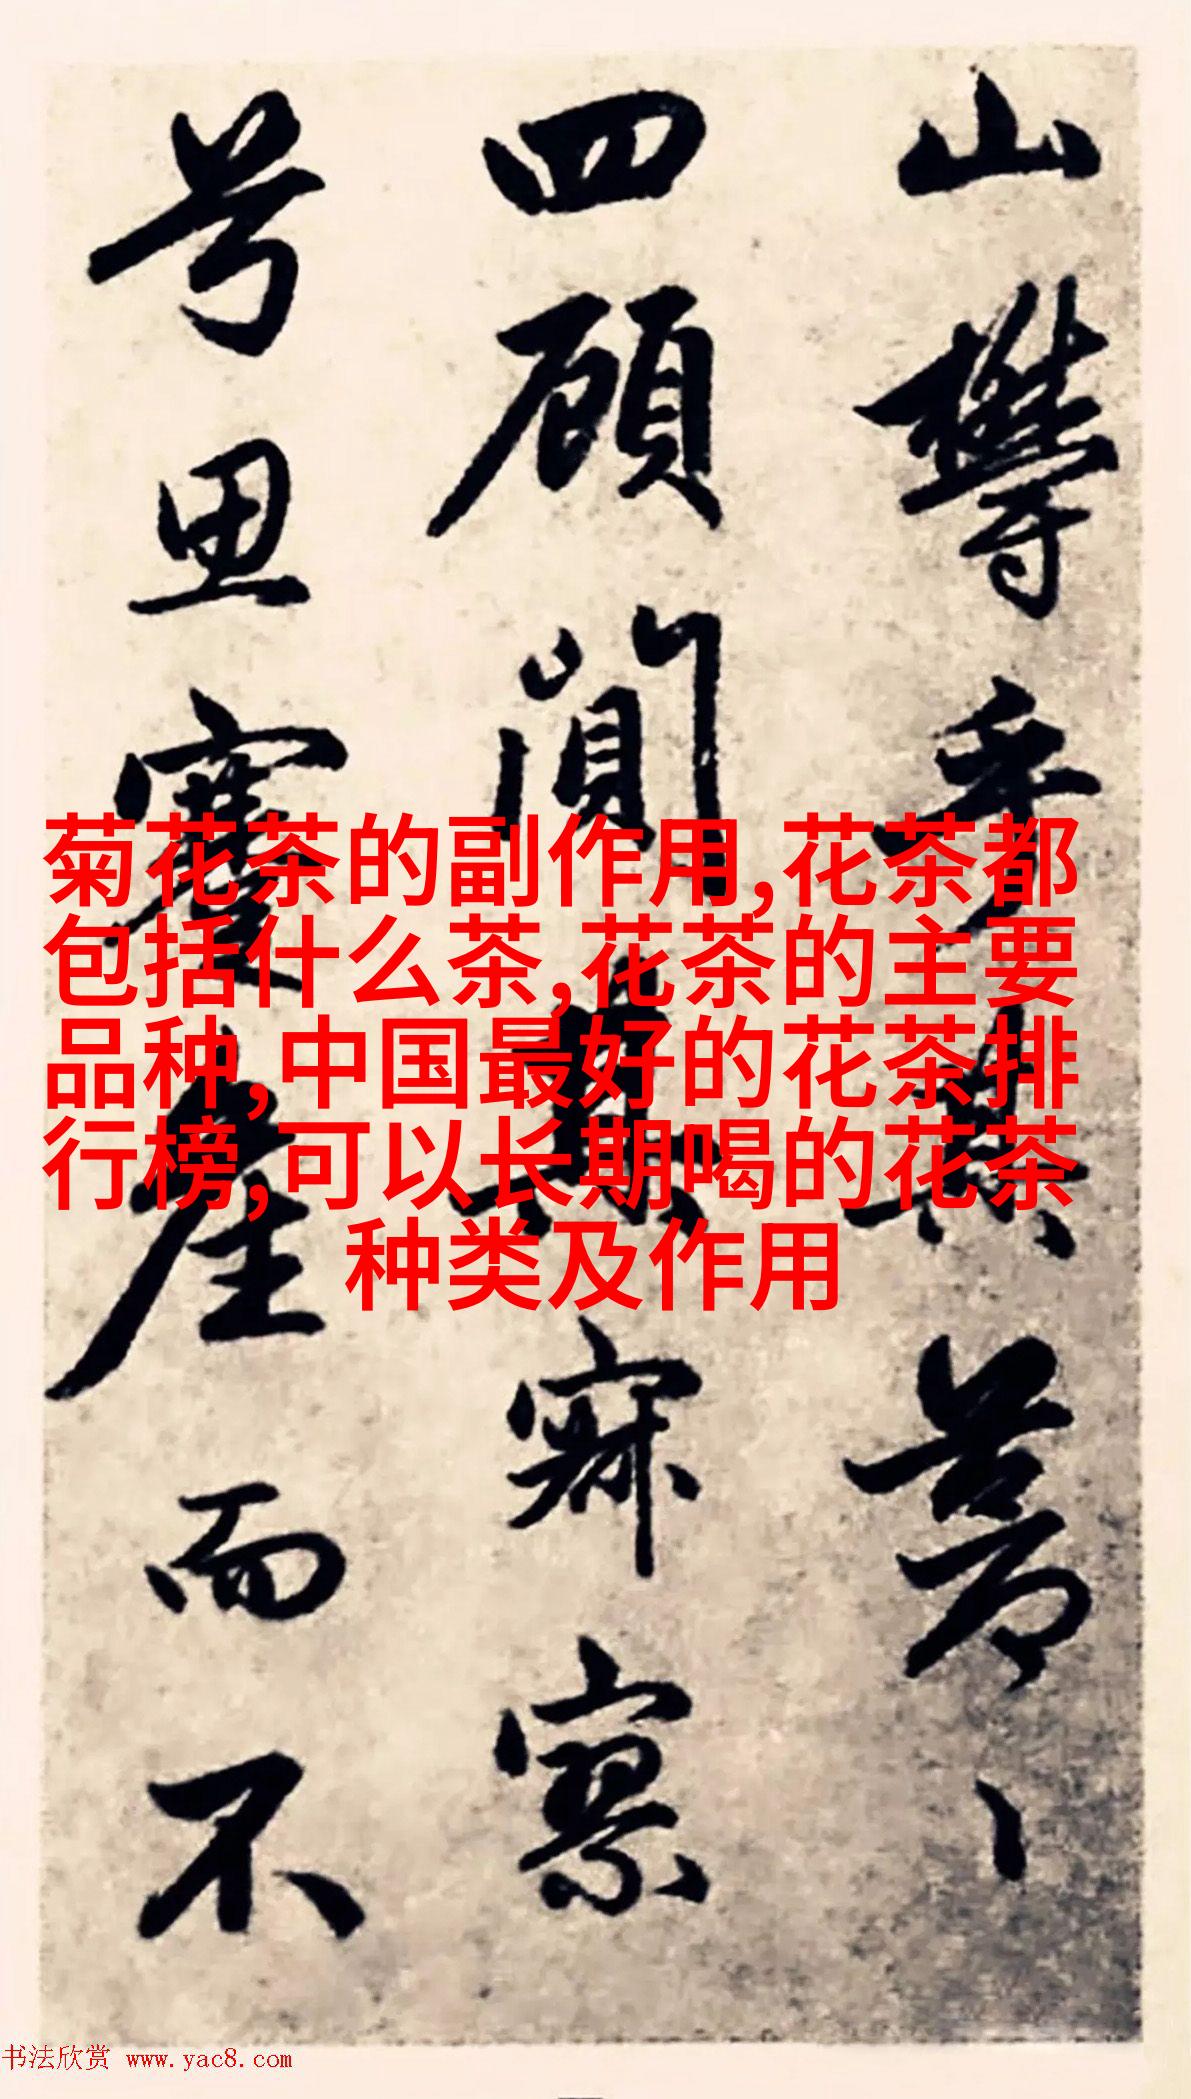 山鬱乎其苍丶
四顾阒其寂寥
号思
而不
菊花茶的副作用,花茶都
包括什么茶,花茶的主要
品种,中国最好的花茶排
行榜,可以长期喝的花茶
种类及作用
书法欣赏 www.yac8.com